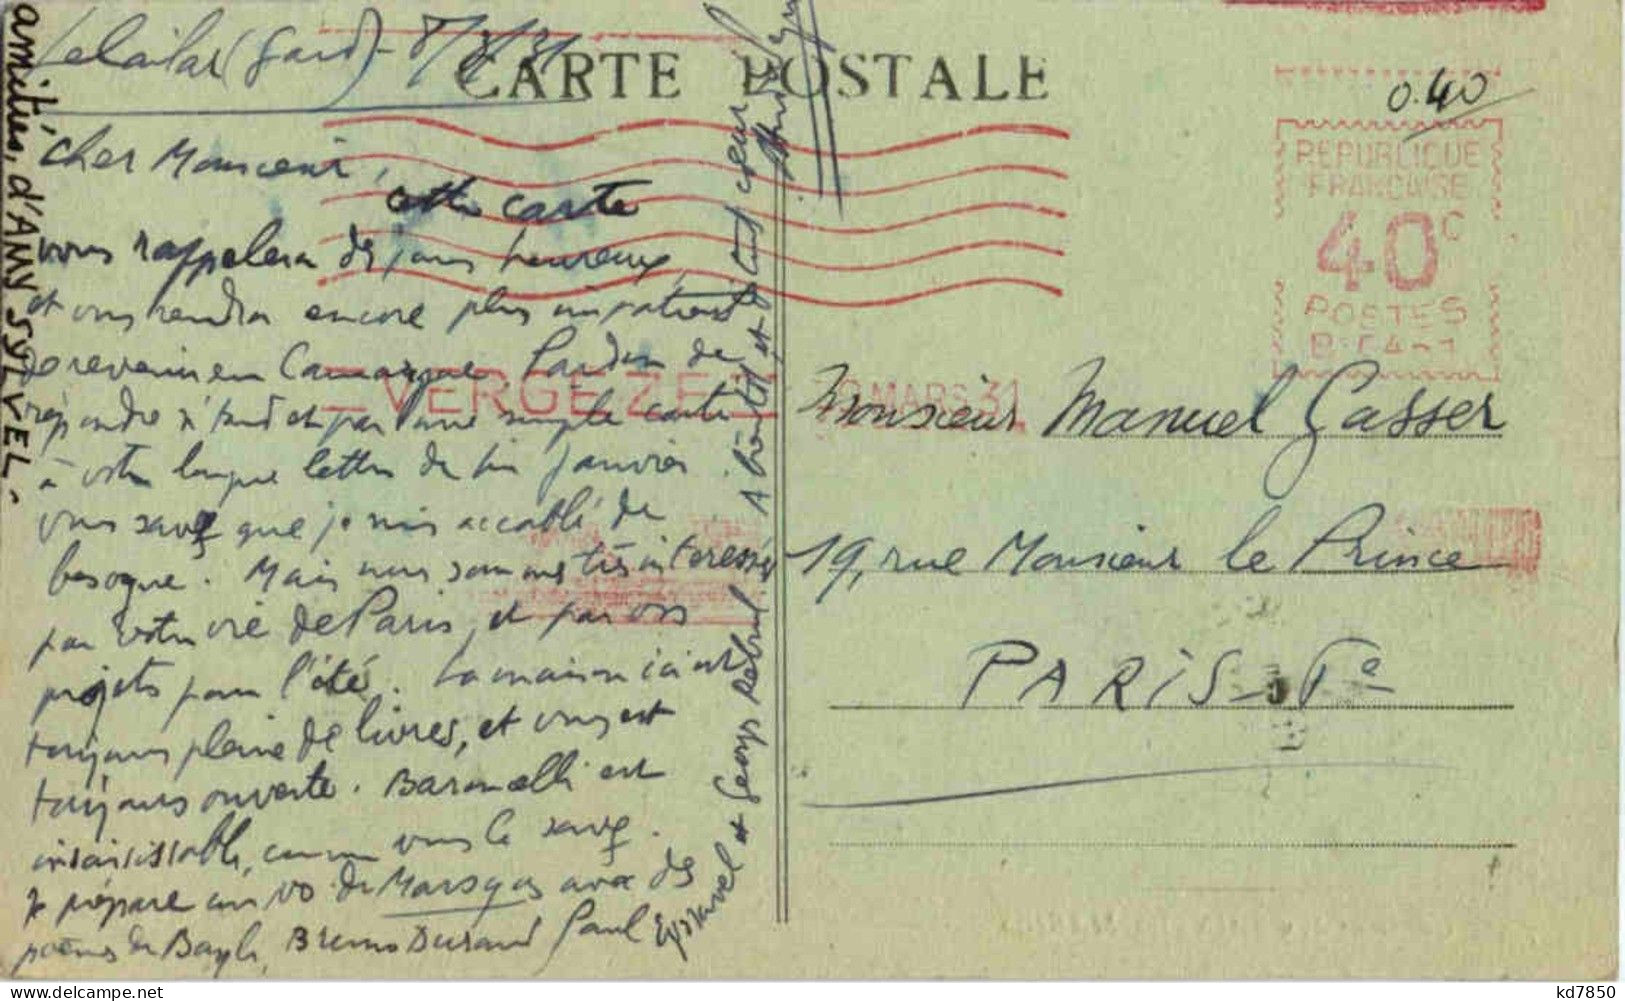 Lelailar (Gard) - 8/3/31
CARTE POSTALE
0.40
REPUBLIQUE
FRANCAISE
40c
POSTES
VERGEZE
MARS 31
cher Monsieur,
cette carte
vous rappelera des jours heureux,
et vous rendra encore plus impatient
de revenir en Camargue. Pardon de
répondre si tard et par une simple carte
à votre longue lettre de fin janvier.
vous savez que je suis accablé de
besogne. Mais nous sommes très intéressés
par votre vie de Paris, et par vos
projets pour l'été. La maison ici est
toujours pleine de livres, et vous est
toujours ouverte. Baroncelli est
insaisissable, comme vous le savez.
Je prépare un no de Marsyas avec des
poèmes de Bayle, Bruno Durand Paul
Eyssavel et Georges Reboul. A bientôt, et de tout coeur
amitiés, d'AMY SYLVEL.
Monsieur Manuel Gasser
19, rue Monsieur le Prince
PARIS - 6e
kd7850